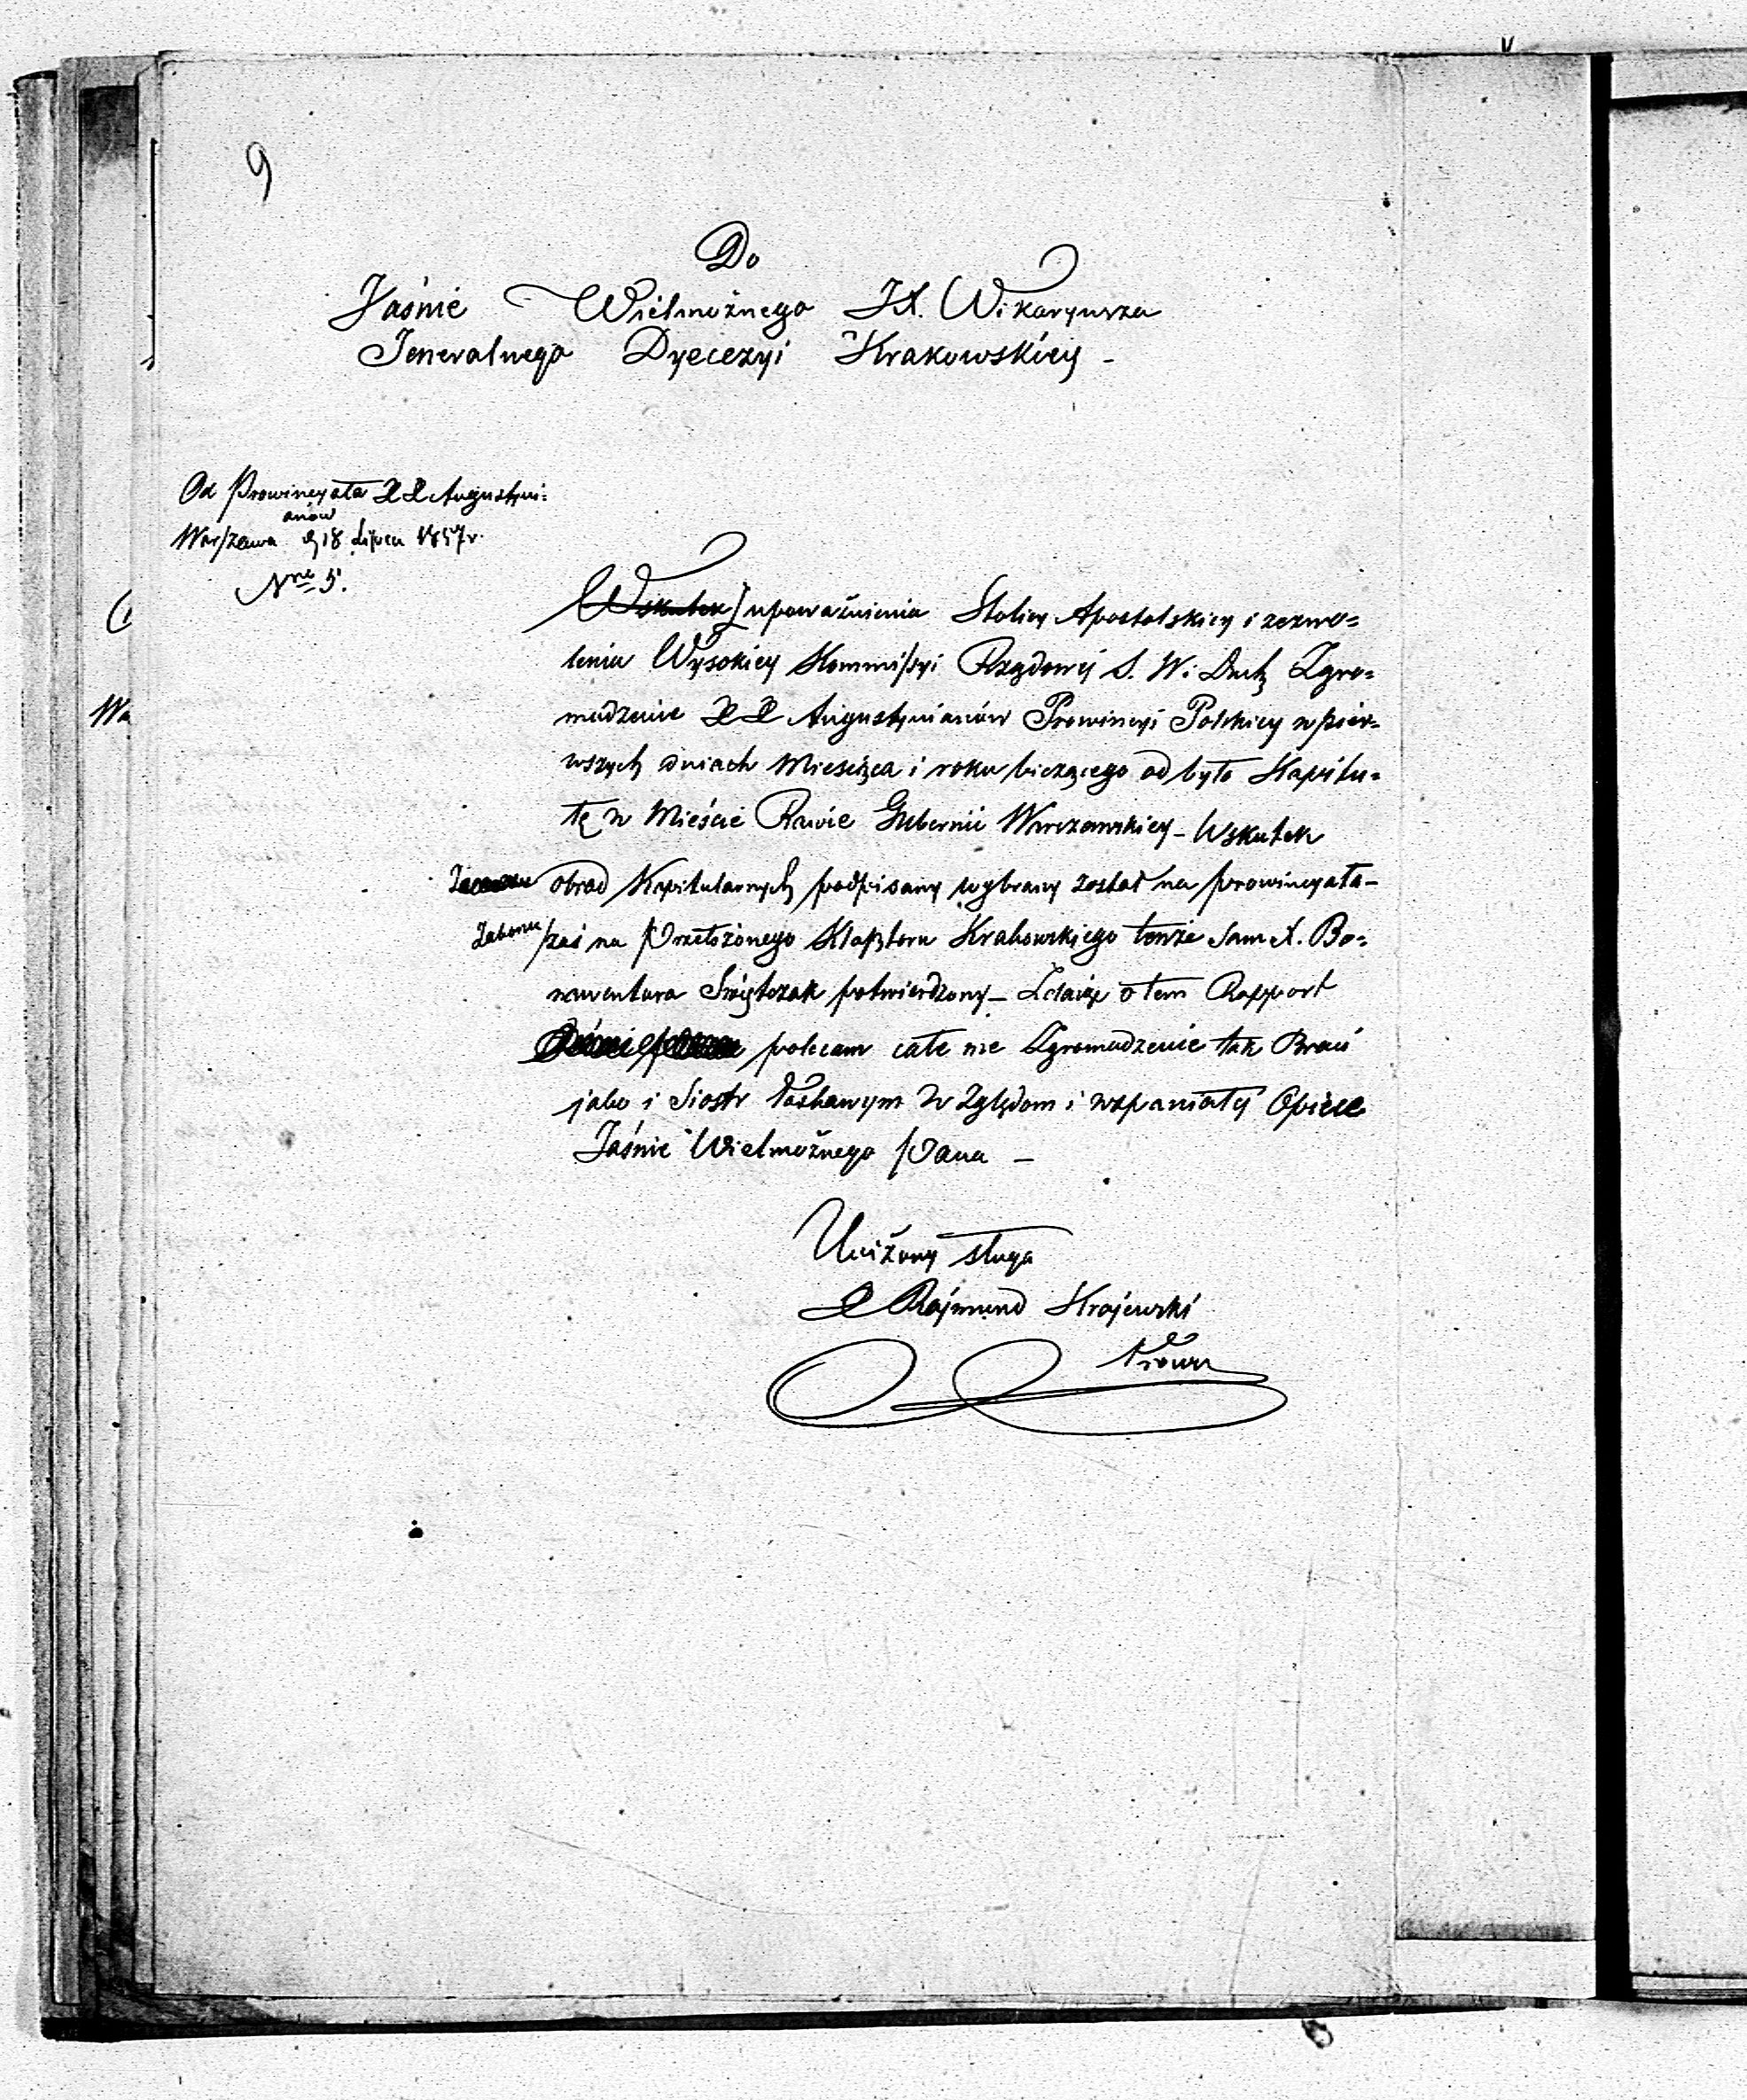 9
Do
Jaśnie Wielmożnego JX. Wikaryusza
Jeneralnego Dyecezyi Krakowskiey -
Od Prowincyała XX Augustyni=
anów
Warszawa d 18 Lipca 1857 r.
Nro 5.
Wskutek upoważnienia Stolicy Apostolskiey i zezwo=
lenia Wysokiey Kommissyi Rządowej S. W. i Duch Zgro=
madzenie XX Augustynianów Prowincyi Polskiey w pier=
wszych dniach Miesiąca i roku bieżącego odbyło Kapitu=
łę w Mieście Rawie Gubernii Warszawskiey - Wskutek
obrad Kapitularnych podpisany wybrany został na prowincyała -
zaś na Przełożonego Klasztoru Krakowskiego tenże sam X. Bo=
nawentura Świętczak potwierdzony - Zdając o tem Rapport
polecam całe me Zgromadzenie tak Braci
jako i Siostr Łaskawym Względom i wspaniałey Opiece
Jaśnie Wielmożnego Pana -
Uniżony sługa
X Rajmund Krajewski
Wa